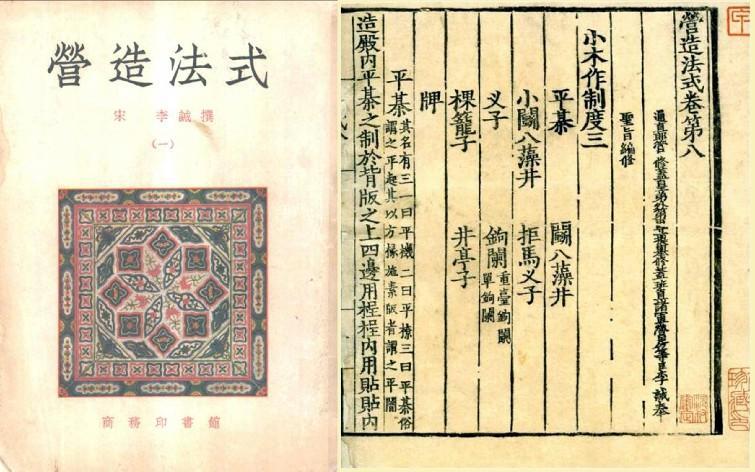 營造法式
宋 李誡撰
(一)
商務印書館
營造法式卷第八
通直郎管修蓋皇弟外第專一提舉修蓋班直諸軍營房等臣李誡奉
聖旨編修
小木作制度三
平棊 鬭八藻井
小鬭八藻井 拒馬叉子
叉子 鉤闌重臺鉤闌單鉤闌
棵籠子 井亭子
牌
平棊其名有三一曰平機二曰平橑三曰平棊俗
謂之平起其以方椽施素版者謂之平闇
造殿內平棊之制於背版之上四邊用桯桯內用貼貼內